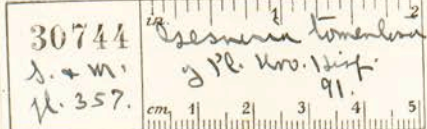 30744
S. & M.
pl. 357.
in. 1 2
Gesneria tomentosa
Pl. Univ. Disp.
91.
cm. 1 2 3 4 5